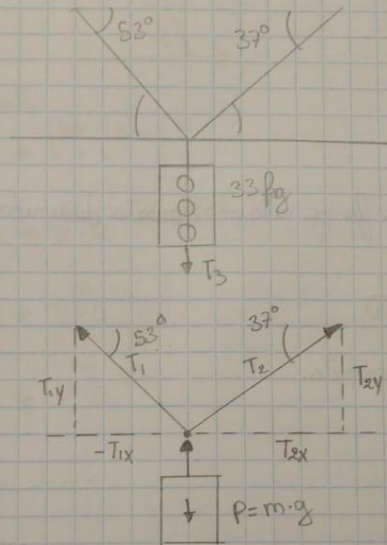 53° 37°
33kg
T3
53° 37°
T1 T2
T1y T2y
-T1x T2x
P=m·g